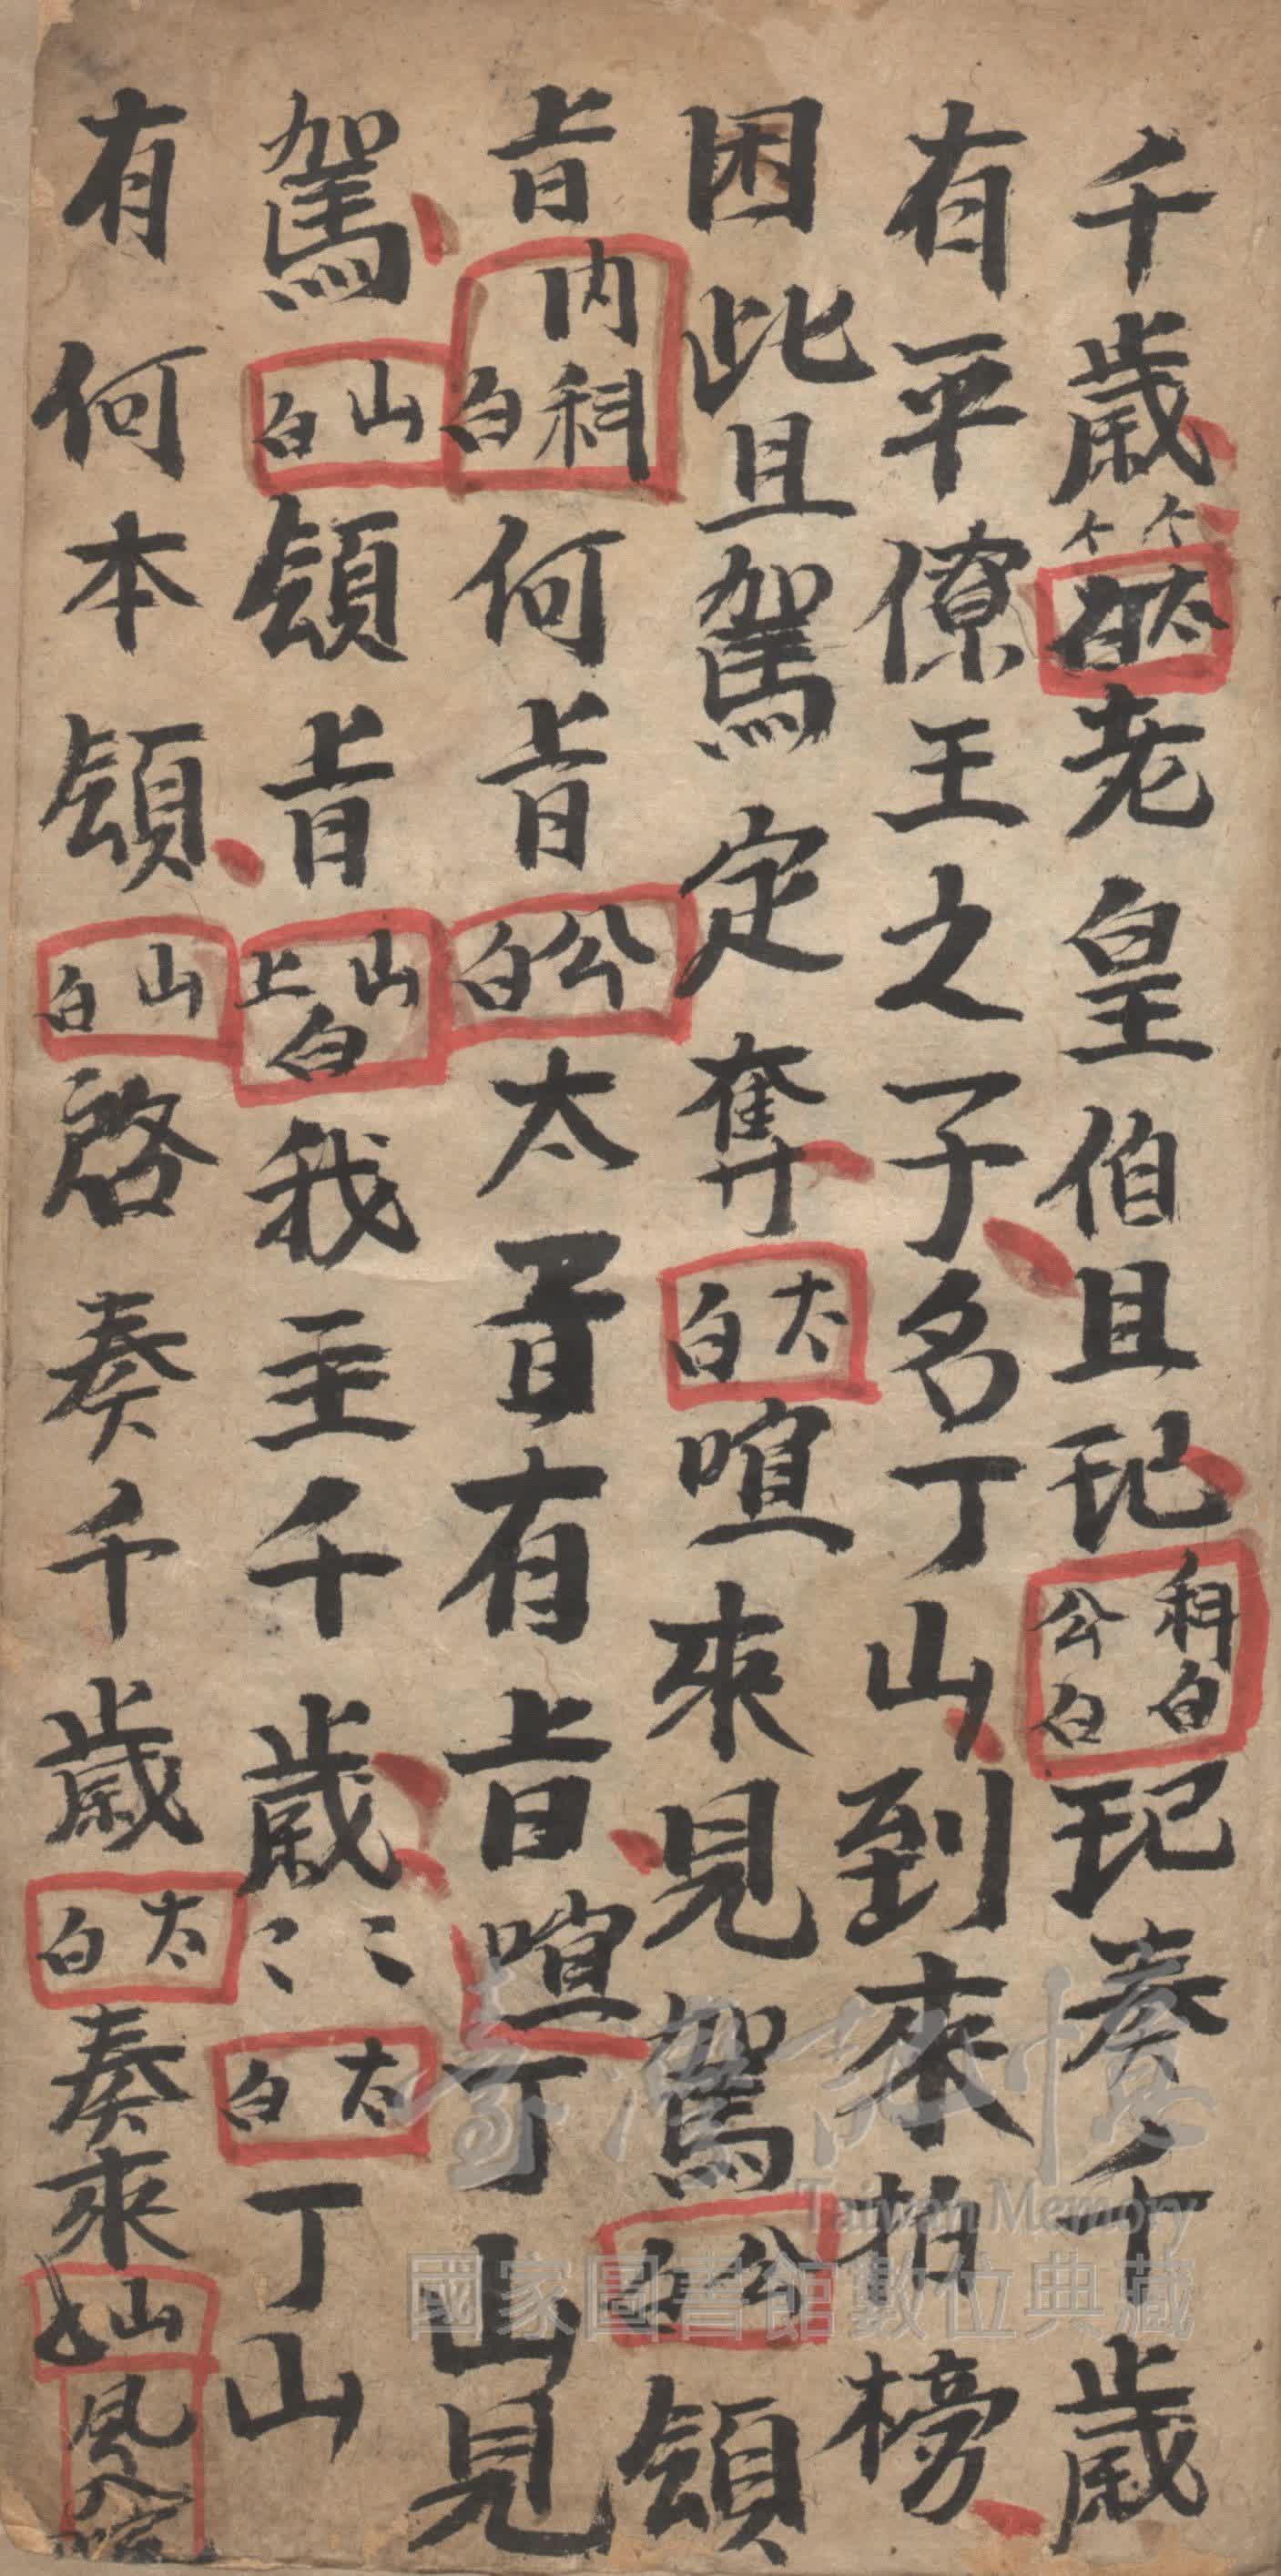 千歲个个太白老皇伯且玘科白公白玘奏千歲
有平僚王之子名丁山到來拍榜
困此且駕定奪太白喧來見駕公白領
旨内科白何旨公白太子有旨喧丁山見
駕山白領旨山上白我主千歲〻〻太白丁山
有何本領山白啓奏千歲太白奏來山风入
臺灣記憶
Taiwan Memory
國家圖書館數位典藏